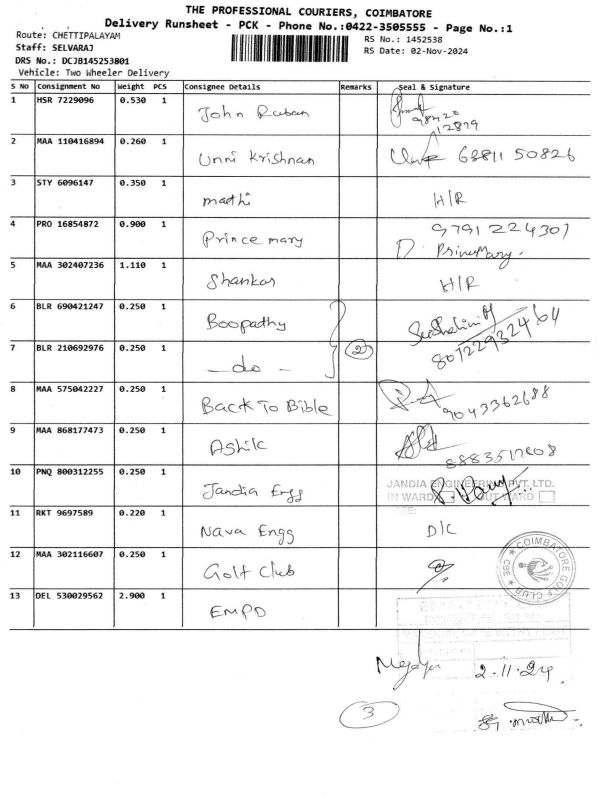 THE PROFESSIONAL COURIERS, COIMBATORE
Delivery Runsheet - PCK - Phone No.:0422-3505555 - Page No.:1
Route: CHETTIPALAYAM
Staff: SELVARAJ
DRS No.: DCJB145253801
Vehicle: Two Wheeler Delivery
RS No.: 1452538
RS Date: 02-Nov-2024
S No Consignment No Weight PCS Consignee Details Remarks Seal & Signature
1 HSR 7229096 0.530 1 John Ruban 98420
12879
2 MAA 110416894 0.260 1 Unni Krishnan 6381150826
3 STY 6096147 0.350 1 mathi H/R
4 PRO 16854872 0.900 1 Prince mary 9791224307
D. PrinceMary.
5 MAA 302407236 1.110 1 Shankar H/R
6 BLR 690421247 0.250 1 Boopathy
7 BLR 210692976 0.250 1 - do - 2 8072293264
8 MAA 575042227 0.250 1 Back To Bible 9043362688
9 MAA 868177473 0.250 1 Ashik
10 PNQ 800312255 0.250 1 Jandia Engg JANDIA ENGINEERING PVT. LTD.
IN WARD OUTWARD
DATE:
11 RKT 9697589 0.220 1 Nava Engg D/C
12 MAA 302116607 0.250 1 Golf Club COIMBATORE GOLF CLUB CBE
13 DEL 530029562 2.900 1 EMPD
2.11.24
3